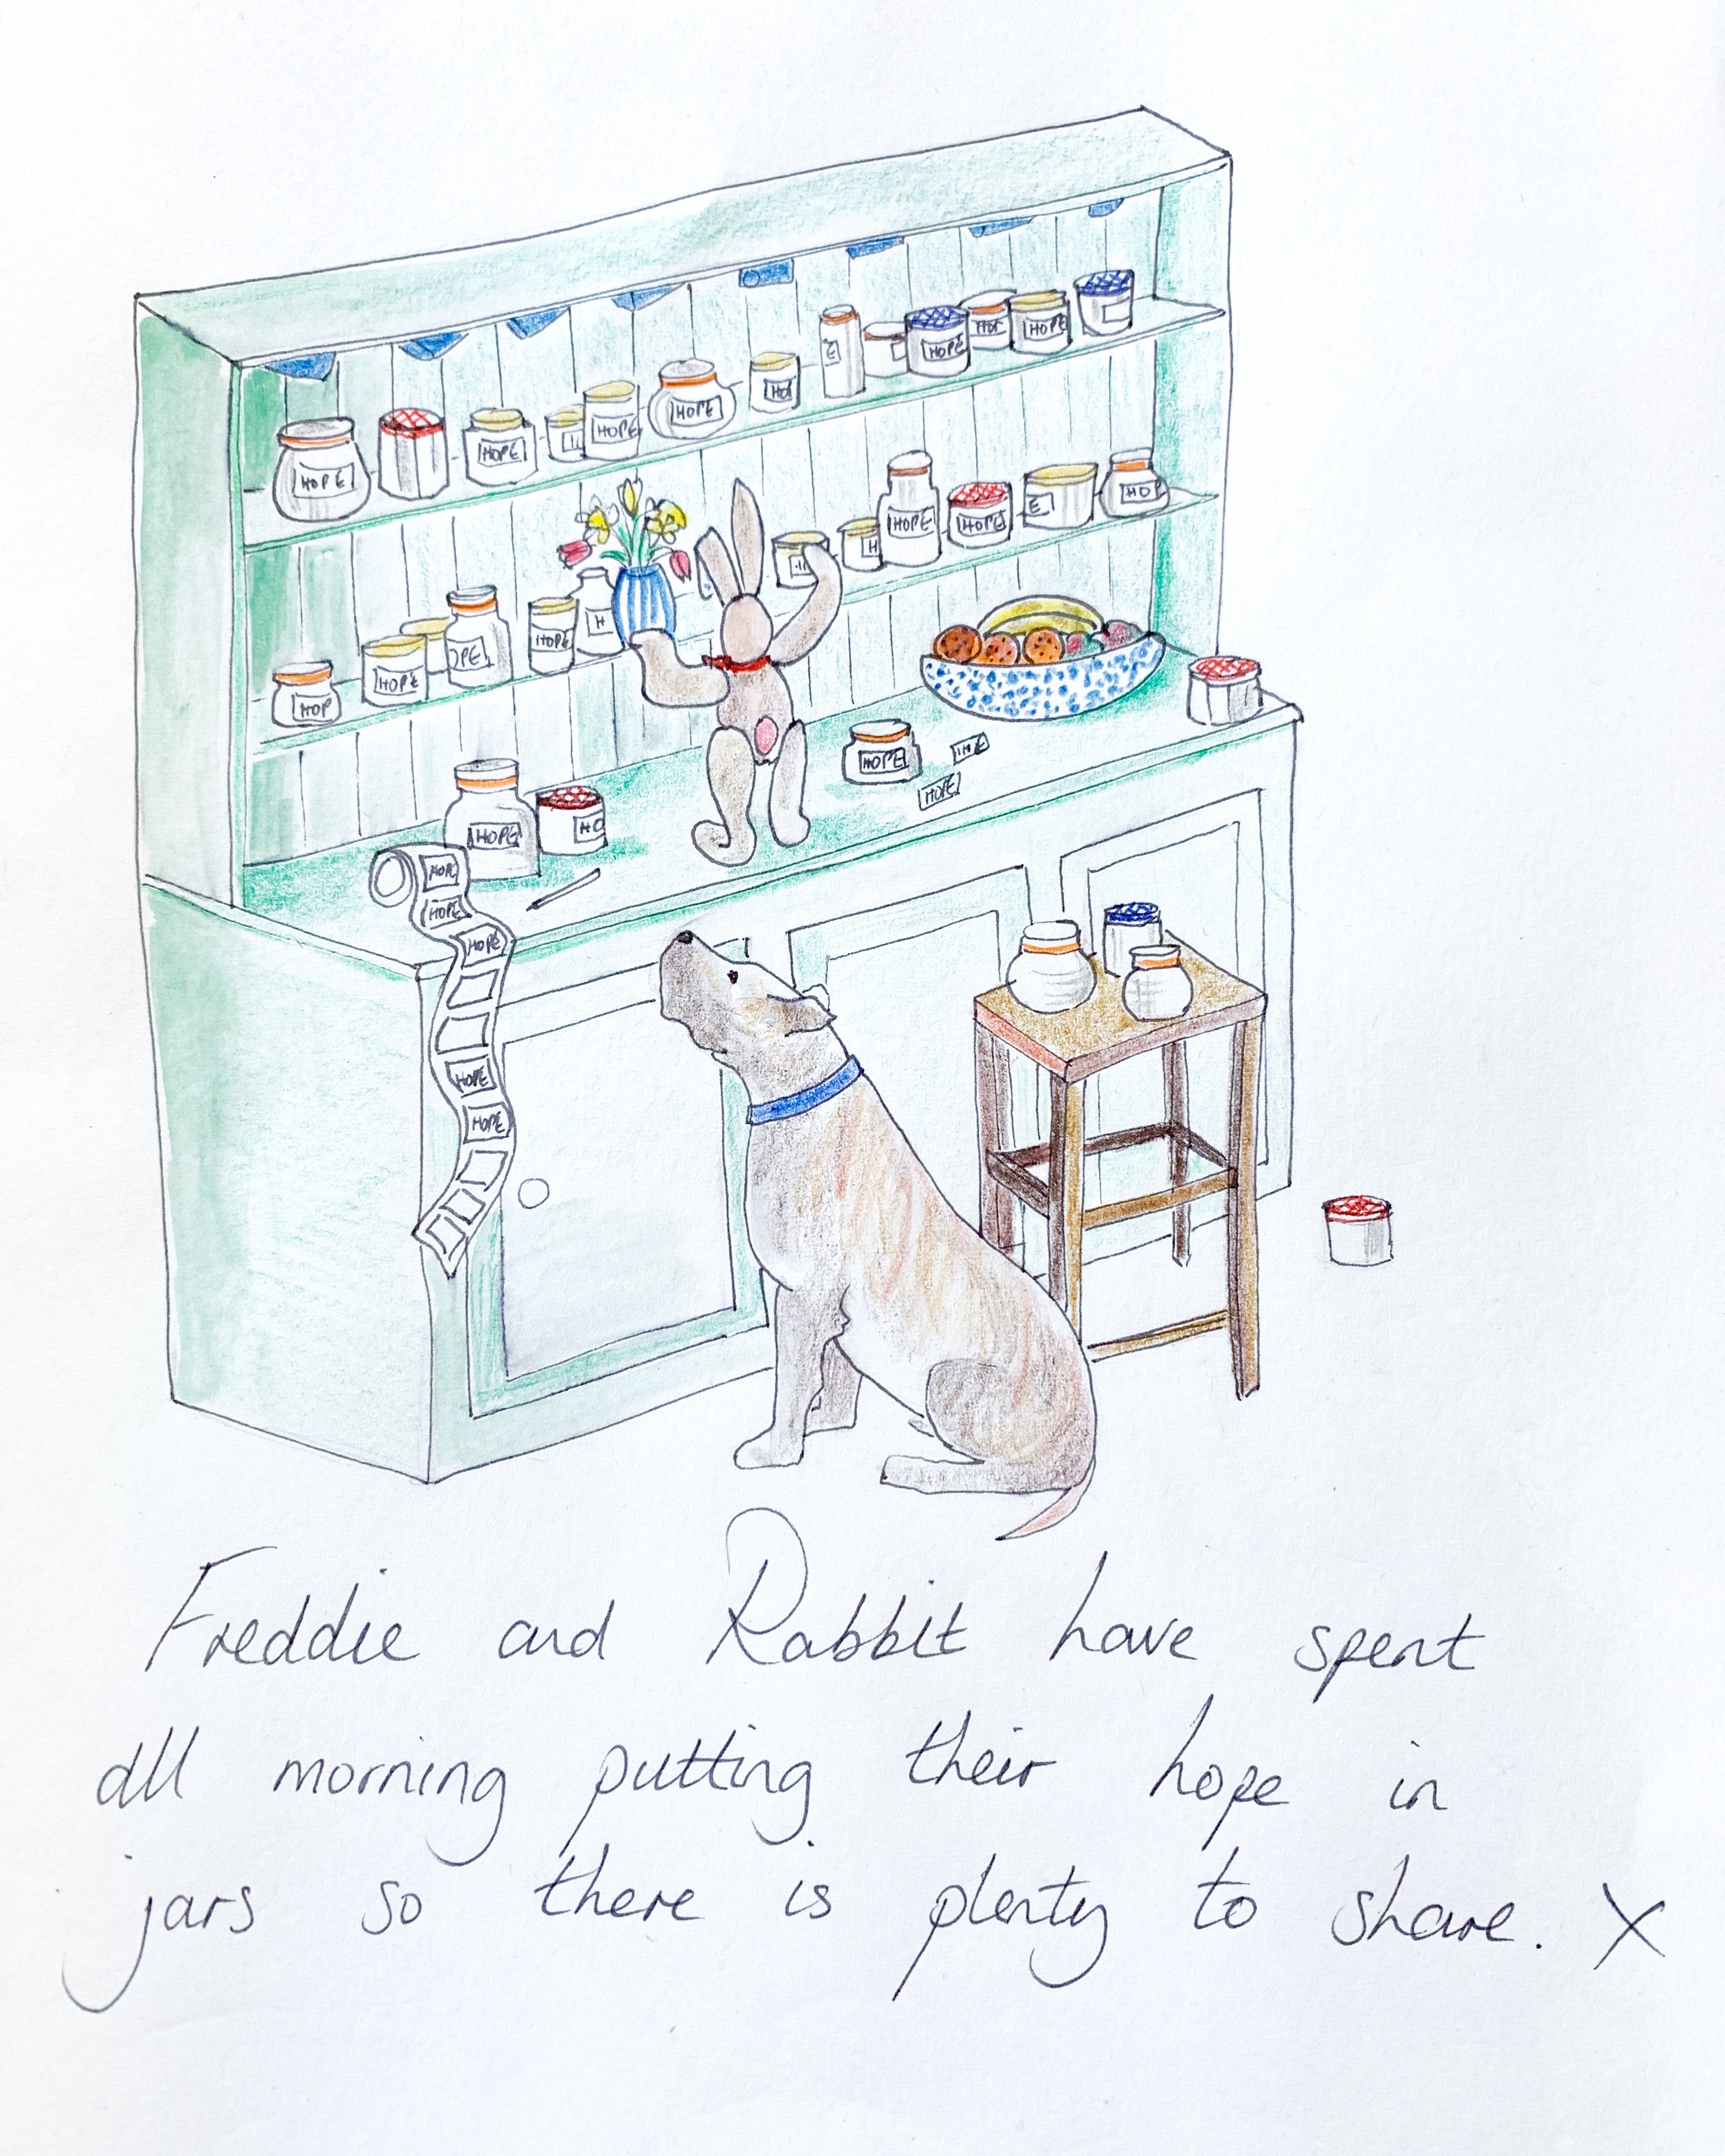 HOPE
HOPE
HOPE
HOPE
HO
E
HOPE
HOP
HOPE
HOPE
HOPE
E
HOP
H
HOPE
H
HOP
HOPE
OPE
HOPE
HOPE
HOPE
HOPE
HO
HOPE
HOPE
HOPE
HOPE
HOPE
Freddie and Rabbit have spent
all morning putting their hope in
jars so there is plenty to share. X